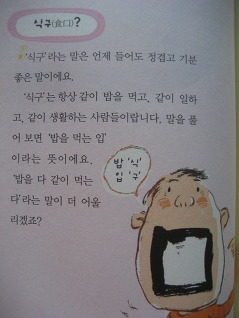 식구(食口)?
'식구'라는 말은 언제 들어도 정겹고 기분
좋은 말이에요.
'식구'는 항상 같이 밥을 먹고, 같이 일하
고, 같이 생활하는 사람들이랍니다. 말을 풀
어 보면 '밥을 먹는 입'
이라는 뜻이에요.
'밥을 다 같이 먹는
다'라는 말이 더 어울
리겠죠?
밥 '식'
입 '구'